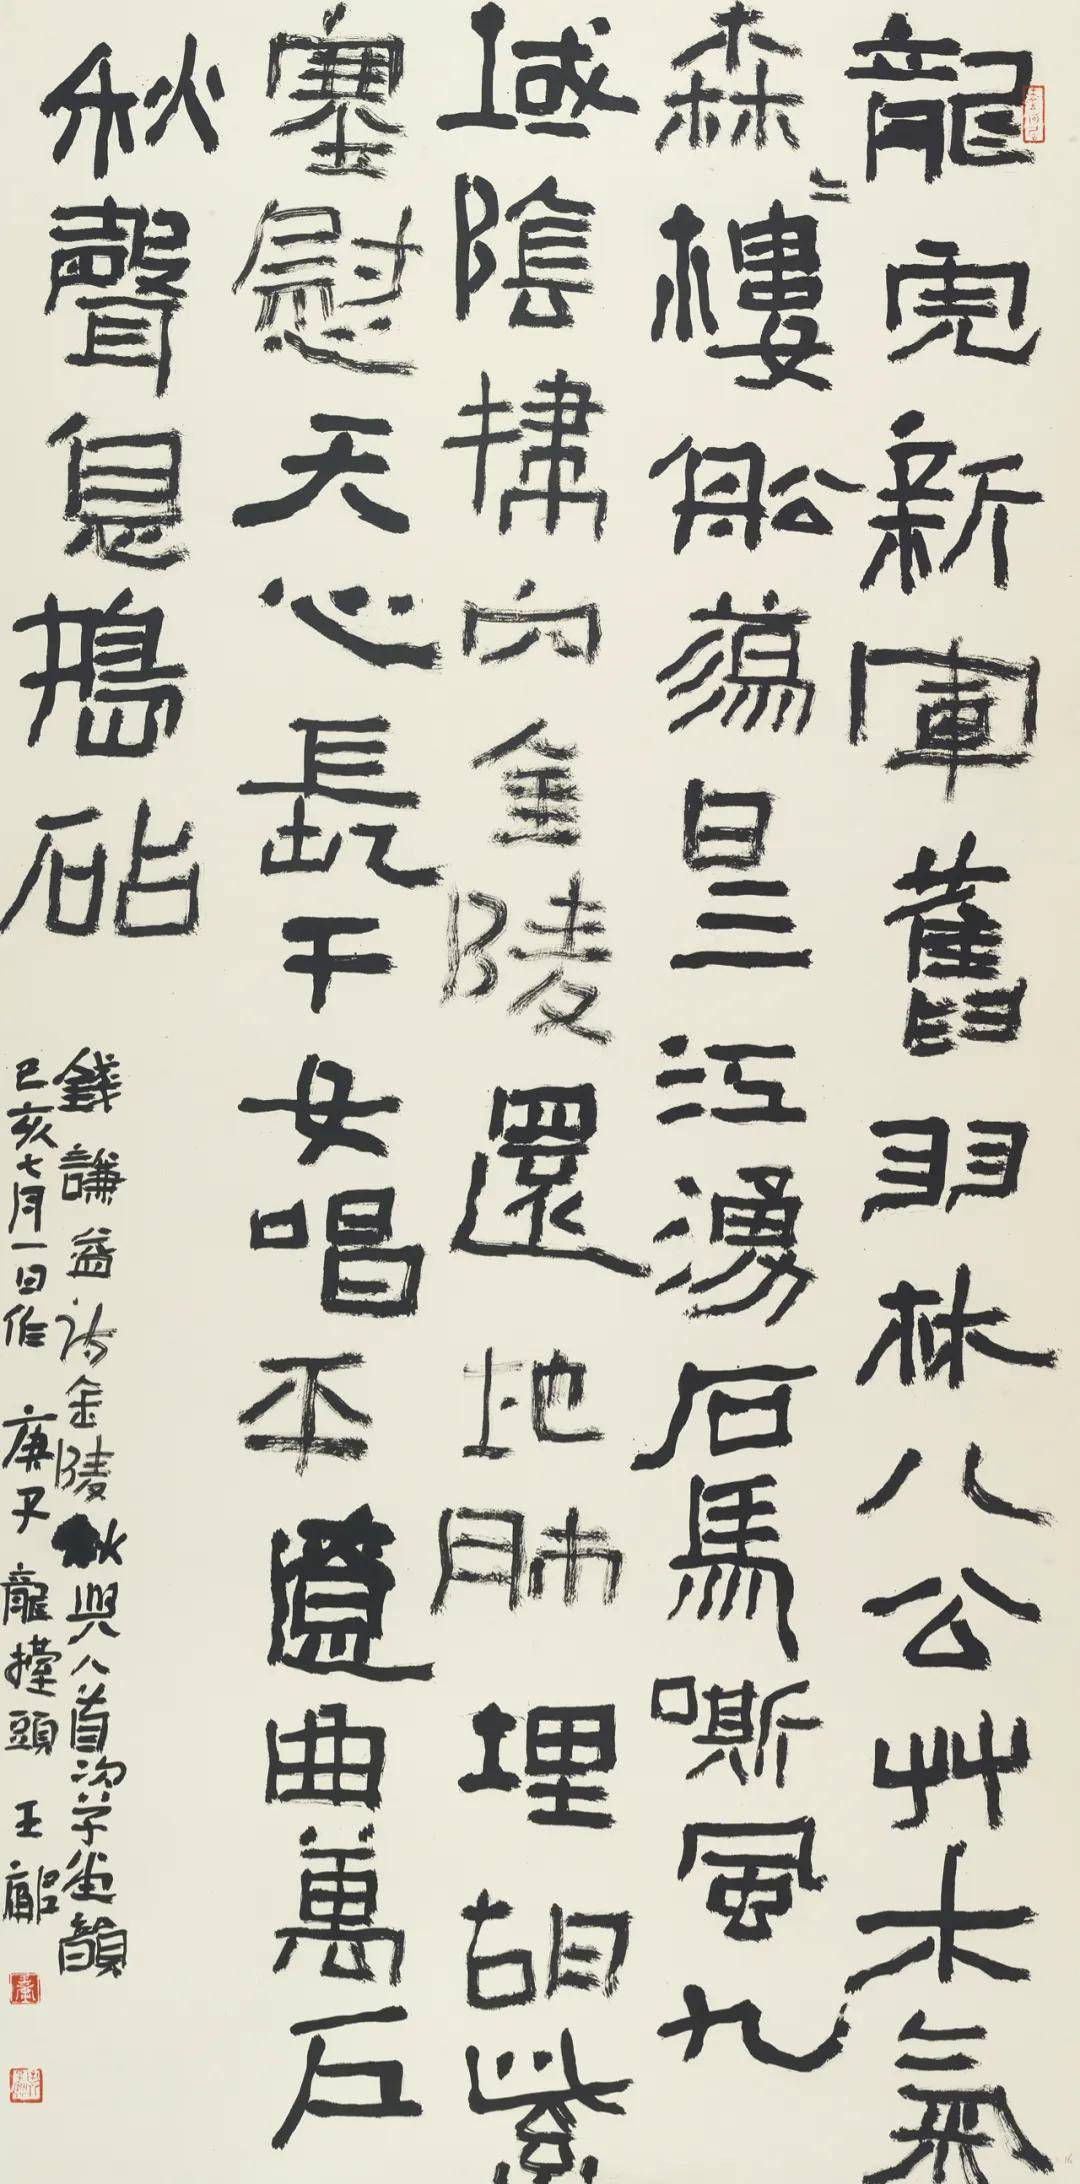 龍虎新軍舊羽林八公艸木氣
森〻樓船蕩日三江湧石馬嘶風九
域陰掃穴金陵還地肺埋胡紫
塞慰天心長干女唱平遼曲萬戶
秋聲息搗砧
錢謙益詩金陵秋興八首次草堂韻
己亥七月一日作 庚子龍擡頭 王鏞